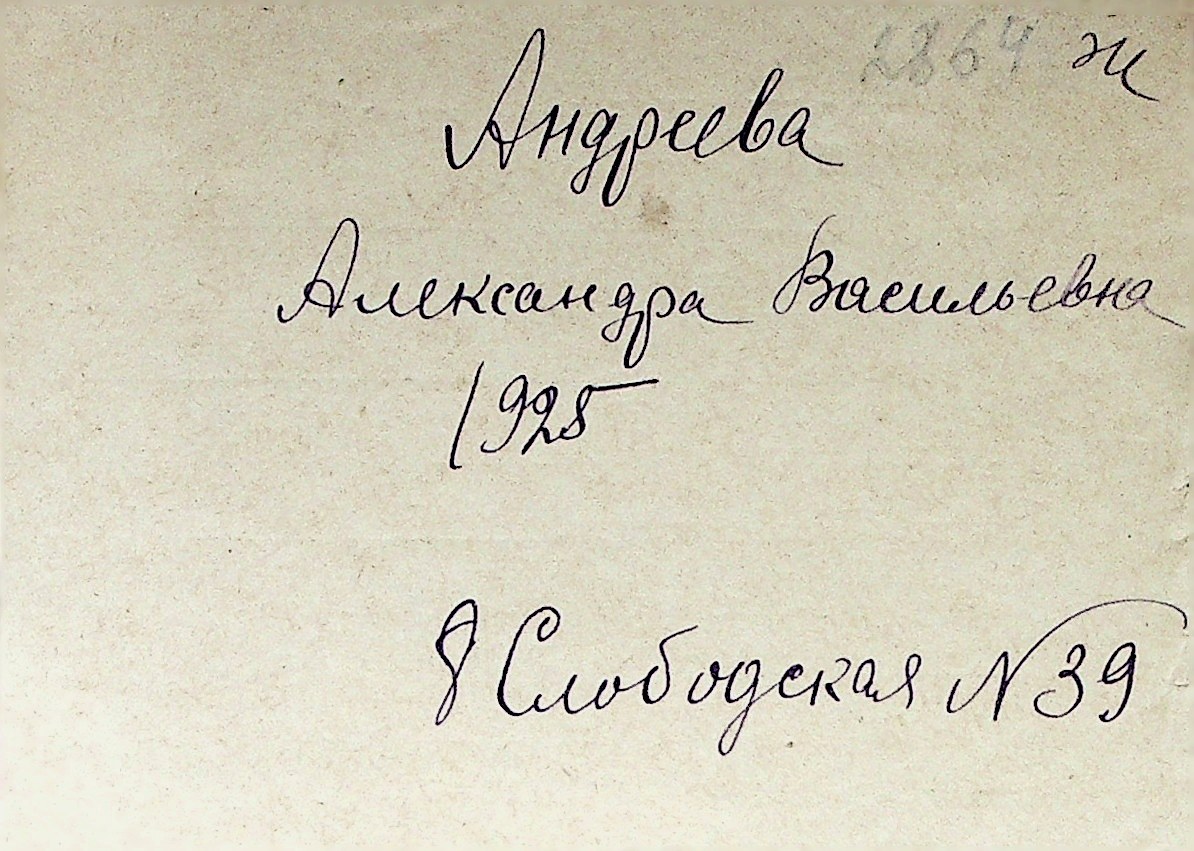 2864 ж
Андреева
Александра Васильевна
1925
8 Слободская N39